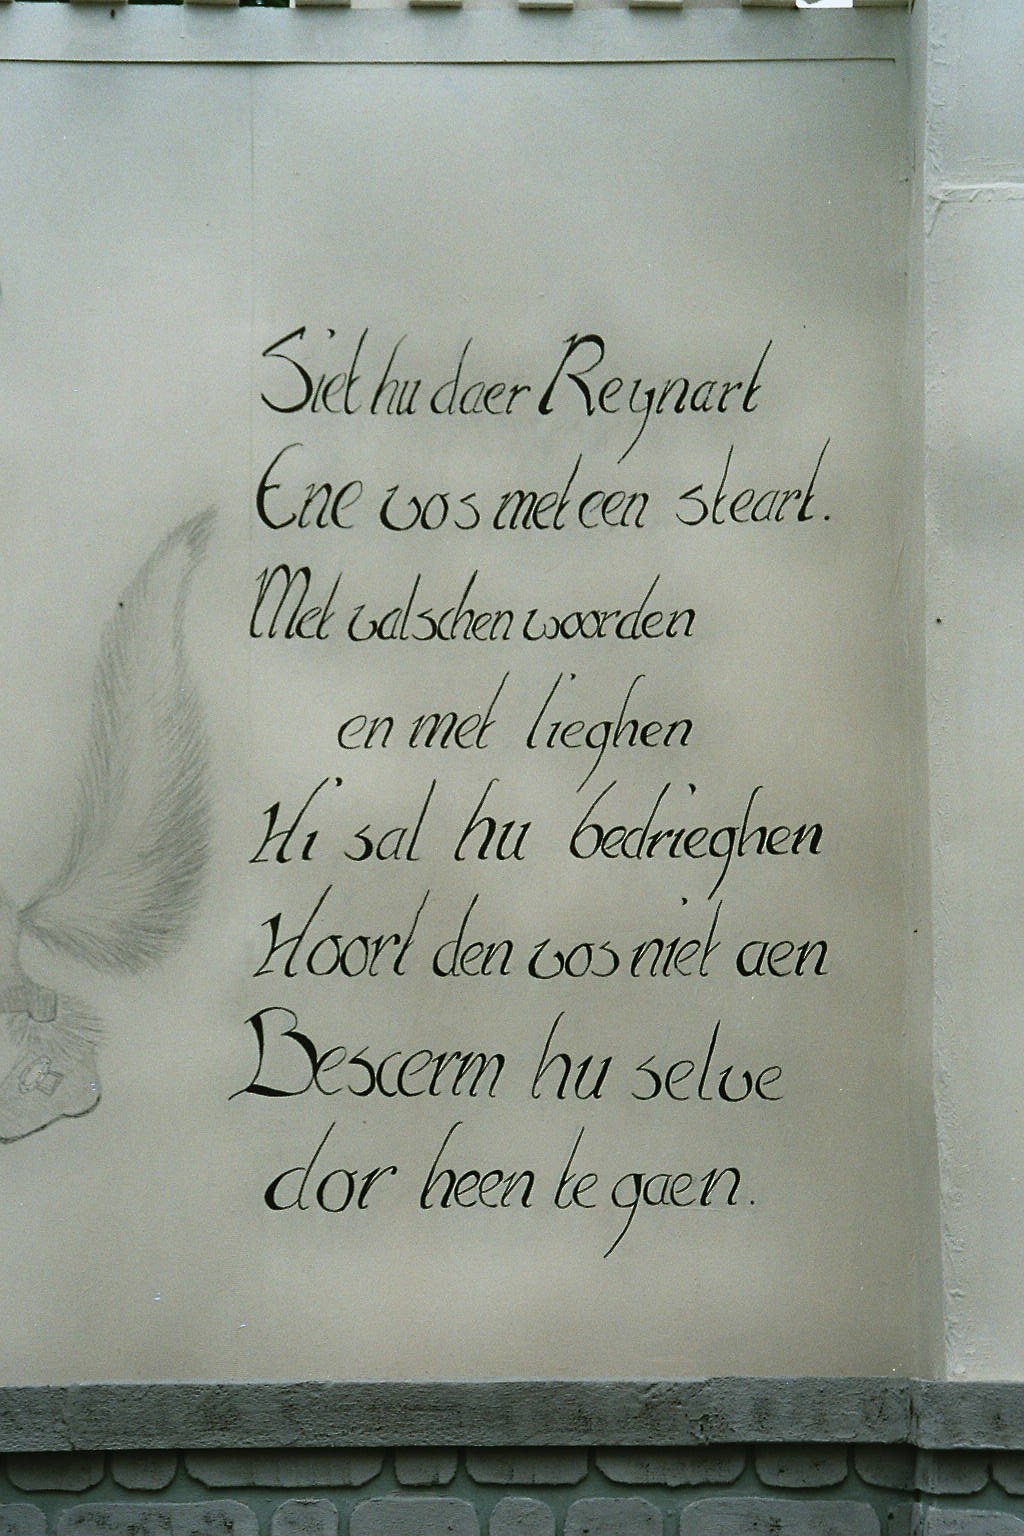 Siet hu daer Reynart
Ene vos met een steart.
Met valschen woorden
en met lieghen
Hi sal hu bedrieghen
Hoort den vos niet aen
Bescerm hu selve
dor heen te gaen.